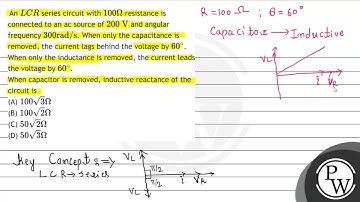 An LCR series circuit with 100Ω resistance is
connected to an ac source of 200 V and angular
frequency 300rad/s. When only the capacitance is
removed, the current lags behind the voltage by 60°.
When only the inductance is removed, the current leads
the voltage by 60°.
When capacitor is removed, inductive reactance of the
circuit is
(A) 100√3Ω
(B) 100√2Ω
(C) 50√2Ω
(D) 50√3Ω
R = 100 Ω ; θ = 60°
Capacitor → Inductive
VL
i
VR
Key Concept ⇒
LCR → series
VL
π/2
π/2
i
VR
VL
PW